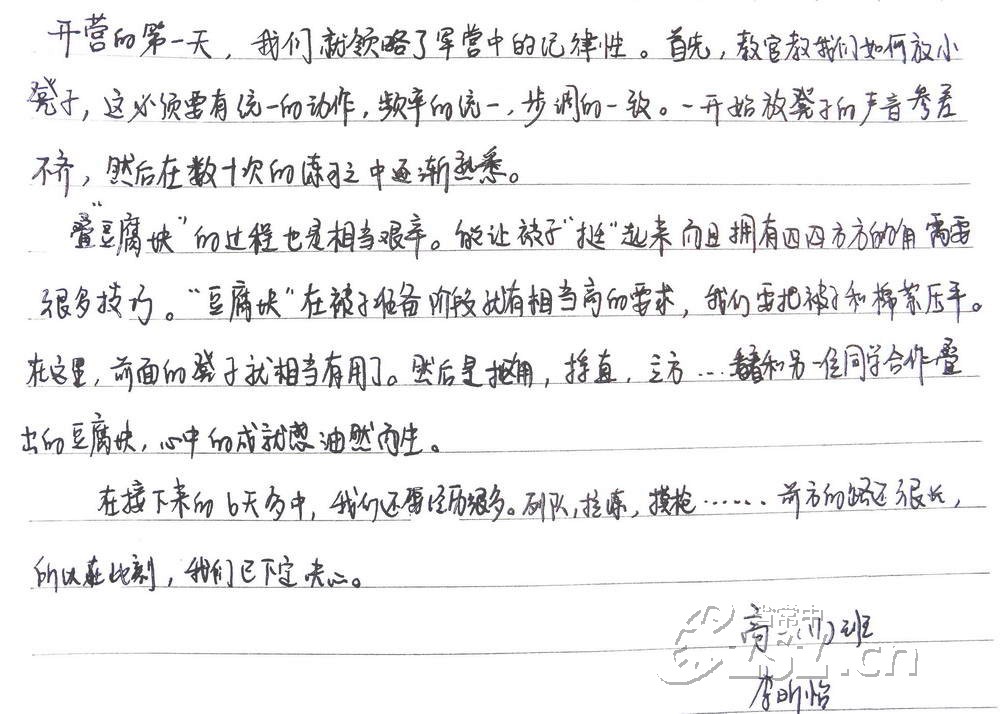 开营的第一天，我们就领略了军营中的纪律性。首先，教官教我们如何放小
凳子，这必须要有统一的动作，频率的统一，步调的一致。一开始放凳子的声音参差
不齐，然后在数十次的练习之中逐渐熟悉。
叠"豆腐块"的过程也是相当艰辛。能让被子"挺"起来而且拥有四四方方的角需要
很多技巧。"豆腐块"在被子准备阶段就有相当高的要求，我们要把被子和棉絮压平。
在这里，前面的凳子就相当有用了。然后是抠角，拉直，立方…看着和另一位同学合作叠
出的豆腐块，心中的成就感油然而生。
在接下来的6天多中，我们还要经历很多。列队，拉练，摸枪……前方的路还很长，
所以在此刻，我们已下定决心。
高一(11)班
李昕怡
省常中
.cn